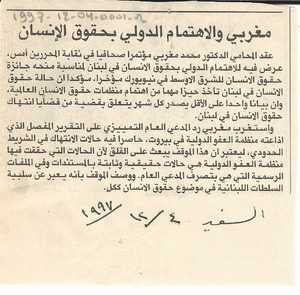 1997-12-04-0001-2
مغربي والاهتمام الدولي بحقوق الإنسان
عقد المحامي الدكتور محمد مغربي مؤتمرا صحافيا في نقابة المحررين أمس،
عرض فيه للاهتمام الدولي بحقوق الانسان في لبنان لمناسبة منحه جائزة
حقوق الانسان للشرق الاوسط في نيويورك مؤخرا، مؤكدا ان حالة حقوق
الانسان في لبنان تأخذ حيزا مهما من اهتمام منظمات حقوق الانسان العالمية،
وان بيانا واحدا على الاقل يصدر كل شهر يتعلق بقضية من قضايا انتهاك
حقوق الانسان في لبنان.
واستغرب مغربي رد المدعي العام التمييزي على التقرير المفصل الذي
اذاعته منظمة العفو الدولية في بيروت، حاصرا فيه حالات الانتهاك في الشريط
الحدودي، ليعتبر ان هذا الموقف يبعث على القلق لأن الحالات التي حققت فيها
منظمة العفو الدولية هي حالات حقيقية وثابتة بالمستندات وفي الملفات
الرسمية التي هي بتصرف المدعي العام. ووصف الموقف بأنه يعبر عن سلبية
السلطات اللبنانية في موضوع حقوق الانسان ككل.
السفير ٤ / ١٢ / ١٩٩٧